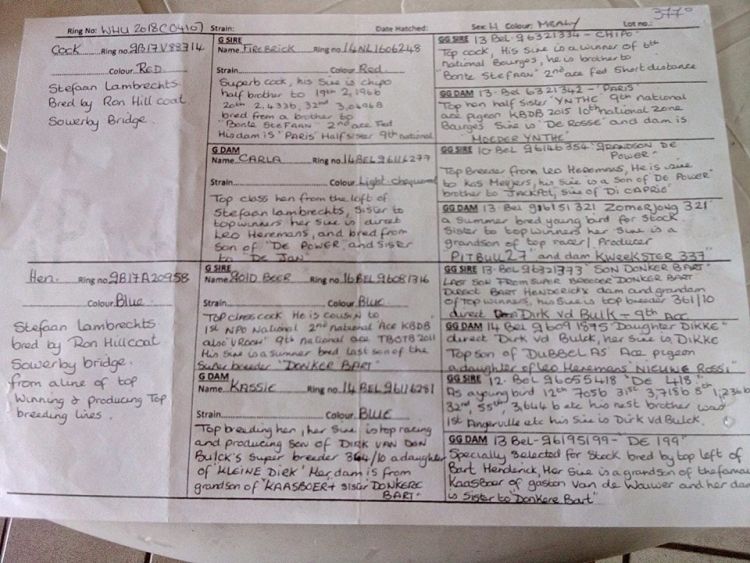 Ring No: WHU 2018 (C0410) Strain: Date Hatched: Sex: H Colour: MEALY Lot no.: 377
Cock Ring no. GB17V83314
Colour RED
Stefaan Lambrechts
Bred by Ron Hill coat
Sowerby Bridge.
G SIRE
Name FIREBRICK Ring no. 14NL1606248
Strain Colour Red.
Superb cock, his Sire is chipo
half brother to 19th 2,196b
20th 2,433b, 32nd 3,0696B
bred from a brother to
"Bonte Stefaan" 2nd ace Fed
His dam is 'PARIS' Half sister 9th national
G DAM
Name CARLA Ring no. 14BEL 96116277
Strain Colour Light-chequered
Top class hen from the loft of
Stefaan lambrechts, Sister to
top winners her Sire is direct
Leo Heremans, and bred from
Son of "De POWER, and Sister
to "De Jan"
GG SIRE 13 BEL 6321334 - CHIPO
Top cock, His Sire is a winner of 6th
national Bourges, he is brother to
"Bonte Stefaan" 2nd ace fed Short distance
GG DAM 13 - Bel 6321342 - 'PARIS
Top hen half sister 'YNTHE' 9th national
ace pigeon KBDB 2015 10th national zone
Bourges Sire is 'De ROSSE' and dam is
'MOEDER YNTHE'
GG SIRE 10 BEL 96146354 "GRANDSON DE
POWER"
Top Breeder from Leo Heremans, He is Sire
to Kas Meyers, his Sire is a Son of De POWER"
brother to JACKPOT, Sire of Di CAPRIO"
GG DAM 13 Bel 916151 321 Zomerjong 321'
a Summer bred young bird for Stock.
Sister to top winners her Sire is a
grandson of top racer/Producer
PITBULL 27" and dam KWEEKSTER 337"
Hen. Ring no. GB17A20958
Colour Blue.
Stefaan Lambrechts
bred by Ron Hillcoat
Sowerby bridge.
from a line of top
Winning & producing Top
breeding lines.
G SIRE
Name GOLD BEER Ring no. 16BEL 96081316
Strain Colour Blue
Top class cock He is cousin to
1st NPO National 2nd national Ace KBDB
also 9th national ace TBOTB 2011
His Sire is a Summer bred last son of the
Super breeder "DONKER BART"
G DAM
Name KASSIE Ring no. 14 BEL 96116281
Strain Colour Blue
Top breeding hen, her Sire is top racing
and producing Son of DIRK VAN DON
Bulck's Super breeder 364/10 a daughter
of "KLEINE DIRK" Her dam is from
grandson of "KAASBOER + Sister DONKERE
BART"
GG SIRE 13-BEL-96321773 "SON DONKER BART"
LAST SON FROM SUPER BREEDER DONKER BART
DIRECT BART HENDERICKX dam and grandam
of top winners, his Sire is top breeder 361/10
direct Dirk vd Bulk - 9th Ace
GG DAM 14 BEL 9609 1875 "Daughter DIKKE"
direct Dirk vd Bulck, her Sire is, DIKKE
Top son of DUBBEL AS' Ace pigeon
a daughter of Leo Heremans NIEUWE ROSSI"
GG SIRE 12. BEL 96055418 "DE 418"
As a young bird 12th 705b 31st 3,715b 5th 1,236b
32nd, 55th, 3,644b etc his nest brother was
1st Angerville etc his Sire is Dirk vd Bulck.
GG DAM 13 Bel-96195199 - "DE 199"
Specially Selected for Stock bred by top left of
Bart Henderick, Her Sire is a grandson of the famous
Kaasboer of gaston van de Wouwer and her dam
is Sister to "Donkere Bart"